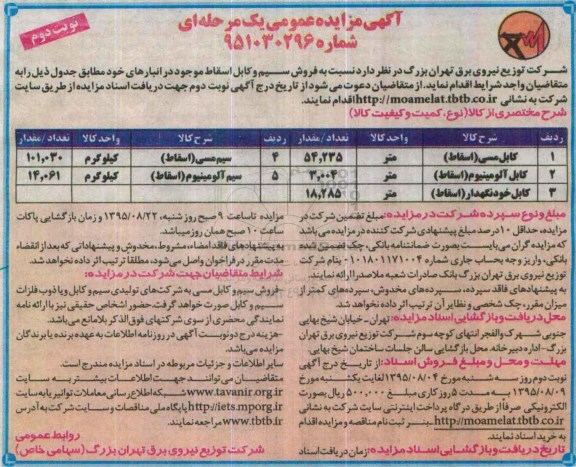 آگهی مزایده عمومی یک مرحله‌ای
شماره ۹۵۱۰۳۰۲۹۶
نوبت دوم
شرکت توزیع نیروی برق تهران بزرگ در نظر دارد نسبت به فروش سیم و کابل اسقاط موجود در انبارهای خود مطابق جدول ذیل را به
متقاضیان واجد شرایط اقدام نماید. از متقاضیان دعوت می شود از تاریخ درج آگهی نوبت دوم جهت دریافت اسناد مزایده از طریق سایت
شرکت به نشانی http://moamelat.tbtb.co.ir اقدام نمایند.
شرح مختصری از کالا (نوع، کمیت و کیفیت کالا)
ردیف شرح کالا واحد کالا تعداد/مقدار ردیف شرح کالا واحد کالا تعداد/مقدار
۱ کابل مسی (اسقاط) متر ۵۴,۲۳۵ ۴ سیم مسی (اسقاط) کیلوگرم ۱۰۱,۰۳۰
۲ کابل آلومینیوم (اسقاط) متر ۳,۰۰۴ ۵ سیم آلومینیوم (اسقاط) کیلوگرم ۱۴,۰۶۱
۳ کابل خودنگهدار (اسقاط) متر ۱۸,۲۸۵
مبلغ و نوع سپرده شرکت در مزایده: مبلغ تضمین شرکت در
مزایده، حداقل ۱۰ درصد مبلغ پیشنهادی شرکت کننده در مزایده می باشد
که مزایده گران می بایست بصورت ضمانتنامه بانکی، چک تضمین شده
بانکی، واریز وجه بحساب جاری شماره ۰۱۰۱۸۰۱۱۷۱۰۰۴ بنام شرکت
توزیع نیروی برق تهران بزرگ بانک صادرات شعبه ملاصدرا ارائه نمایند.
به پیشنهادهای فاقد سپرده، سپرده‌های مخدوش، سپرده‌های کمتر از
میزان مقرر، چک شخصی و نظایر آن ترتیب اثر داده نخواهد شد.
محل دریافت و بازگشایی اسناد مزایده: تهران - خیابان شیخ بهایی
جنوبی شهرک والفجر انتهای کوچه سوم شرکت توزیع نیروی برق تهران
بزرگ - اداره دبیرخانه. محل بازگشایی سالن جلسات ساختمان شیخ بهایی.
مهلت و محل و مبلغ فروش اسناد: از تاریخ درج آگهی
نوبت دوم روز سه شنبه مورخ ۱۳۹۵/۰۸/۰۴ لغایت یکشنبه مورخ
۱۳۹۵/۰۸/۰۹ به مدت ۵ روز کاری مبلغ ۵۰۰,۰۰۰ ریال بصورت
الکترونیکی صرفاً از طریق درگاه پرداخت اینترنتی سایت شرکت به نشانی
http://moamelat.tbtb.co.ir بنر ثبت نام مناقصه و مزایده اقدام
به خرید اسناد نمایند.
تاریخ دریافت و بازگشایی اسناد مزایده: زمان دریافت اسناد
مزایده تا ساعت ۹ صبح روز شنبه، ۱۳۹۵/۰۸/۲۲ و زمان بازگشایی پاکات
ساعت ۱۰ صبح همان روز میباشد.
به پیشنهادهای فاقد امضاء، مشروط، مخدوش و پیشنهاداتی که بعد از انقضاء
مدت مقرر در فراخوان واصل می شود، مطلقا ترتیب اثر داده نخواهد شد.
شرایط متقاضیان جهت شرکت در مزایده:
فروش سیم و کابل مسی به شرکت‌های تولیدی سیم و کابل و یا ذوب فلزات
سیم و کابل صورت خواهد گرفت. حضور اشخاص حقیقی نیز با ارائه نامه
نمایندگی محضری از سوی شرکتهای فوق الذکر بلامانع می باشد.
-هزینه درج دو نوبت آگهی در روزنامه اطلاعات به عهده برنده یا برندگان
مزایده می باشد.
سایر اطلاعات و جزئیات مربوطه در اسناد مزایده مندرج است.
متقاضیان می توانند جهت اطلاعات بیشتر به سایت
www.tavanir.org.ir شبکه اطلاع رسانی معاملات توانیر یا به سایت
http://iets.mporg.ir پایگاه ملی مناقصات و سایت شرکت به آدرس
www.tbtb.ir مراجعه نمایند.
روابط عمومی
شرکت توزیع نیروی برق تهران بزرگ (سهامی خاص)